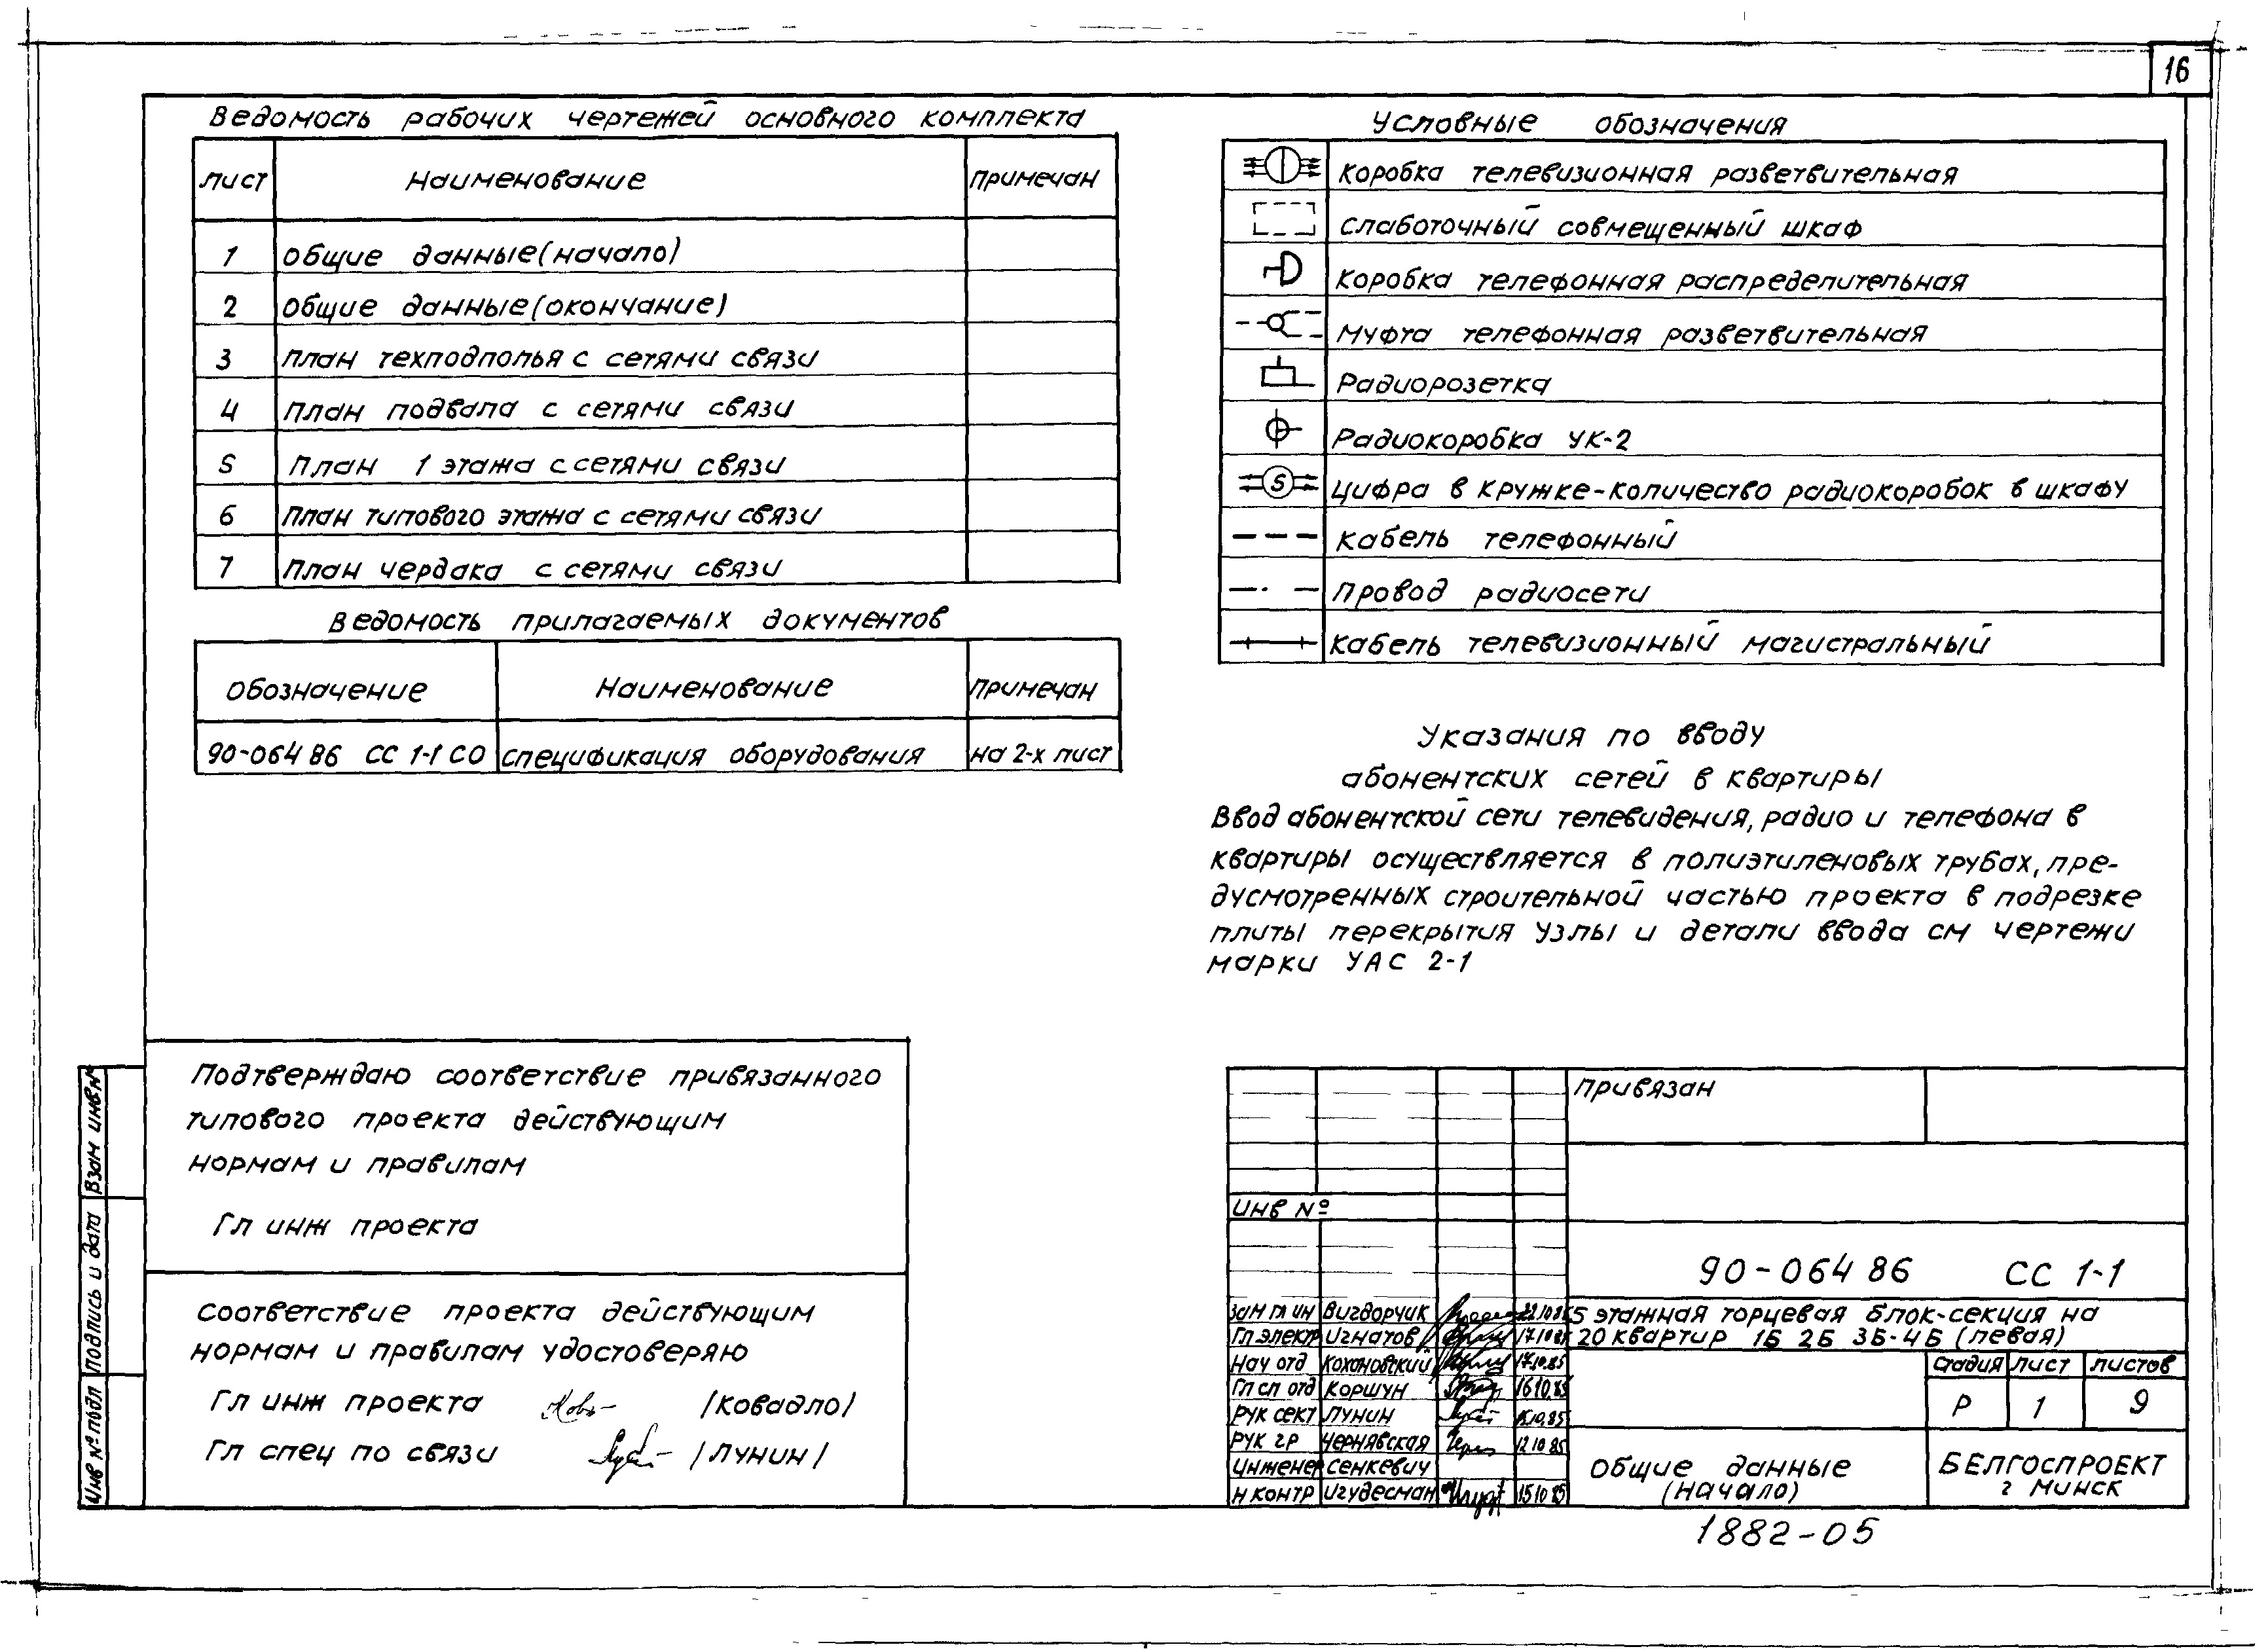 16
Ведомость рабочих чертежей основного комплекта
Лист Наименование Примечан
1 Общие данные (начало)
2 Общие данные (окончание)
3 План техподполья с сетями связи
4 План подвала с сетями связи
5 План 1 этажа с сетями связи
6 План типового этажа с сетями связи
7 План чердака с сетями связи
Ведомость прилагаемых документов
Обозначение Наименование Примечан
90-064 86 СС 1-1 СО Спецификация оборудования на 2-х лист
Условные обозначения
Коробка телевизионная разветвительная
Слаботочный совмещенный шкаф
Коробка телефонная распределительная
Муфта телефонная разветвительная
Радиорозетка
Радиокоробка УК-2
5 Цифра в кружке-количество радиокоробок в шкафу
Кабель телефонный
Провод радиосети
Кабель телевизионный магистральный
Указания по вводу
абонентских сетей в квартиры
Ввод абонентской сети телевидения, радио и телефона в
квартиры осуществляется в полиэтиленовых трубах, пре-
дусмотренных строительной частью проекта в подрезке
плиты перекрытия Узлы и детали ввода см чертежи
марки УАС 2-1
Подтверждаю соответствие привязанного
типового проекта действующим
нормам и правилам
Гл инж проекта
Соответствие проекта действующим
нормам и правилам удостоверяю
Гл инж проекта /Ковадло/
Гл спец по связи /Лунин/
Взам инв №
Подпись и дата
Инв № подл
Привязан
Инв №
90-064 86 СС 1-1
Зам гл ин Вигдорчик 22.10.85
Гл электр Игнатов 17.10.85
Нач отд Кохановский 17.10.85
Гл сп отд Коршун 16.10.85
Рук сект Лунин 15.10.85
Рук гр Чернявская 12 10 85
Инженер Сенкевич
Н контр Игудесман 15 10 85
5 этажная торцевая блок-секция на
20 квартир 1Б 2Б 3Б-4Б (левая)
Стадия Лист Листов
Р 1 9
Общие данные
(начало)
БЕЛГОСПРОЕКТ
г Минск
1882-05